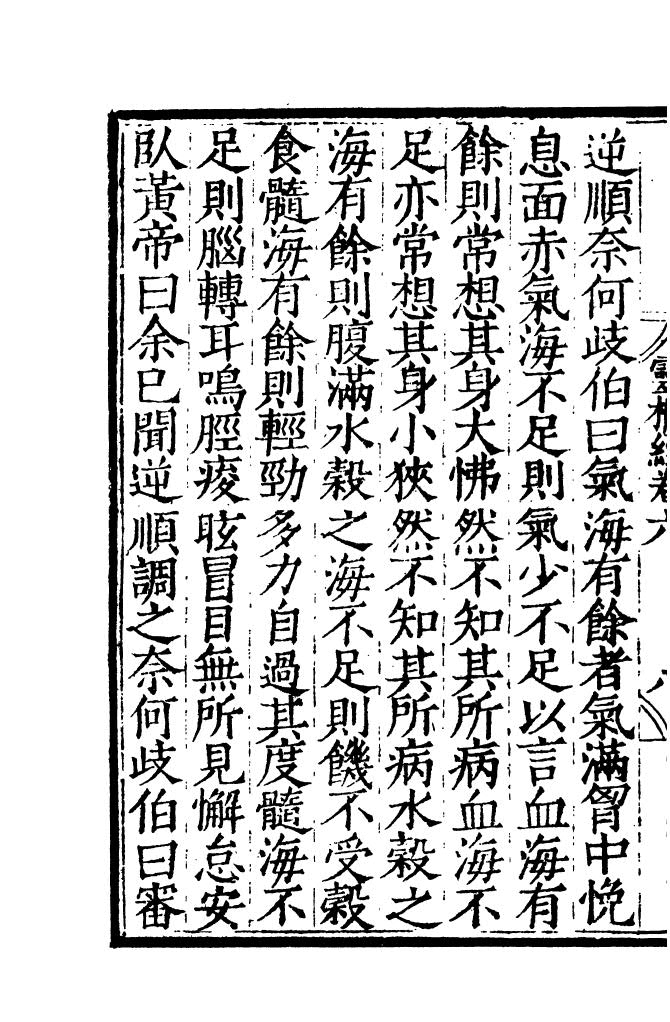 逆順奈何歧伯曰氣海有餘者氣滿胷中悗
息面赤氣海不足則氣少不足以言血海有
餘則常想其身大怫然不知其所病血海不
足亦常想其身小狹然不知其所病水穀之
海有餘則腹滿水穀之海不足則饑不受穀
食髓海有餘則輕勁多力自過其度髓海不
足則腦轉耳鳴脛痠眩冒目無所見懈怠安
臥黃帝曰余已聞逆順調之奈何歧伯曰審